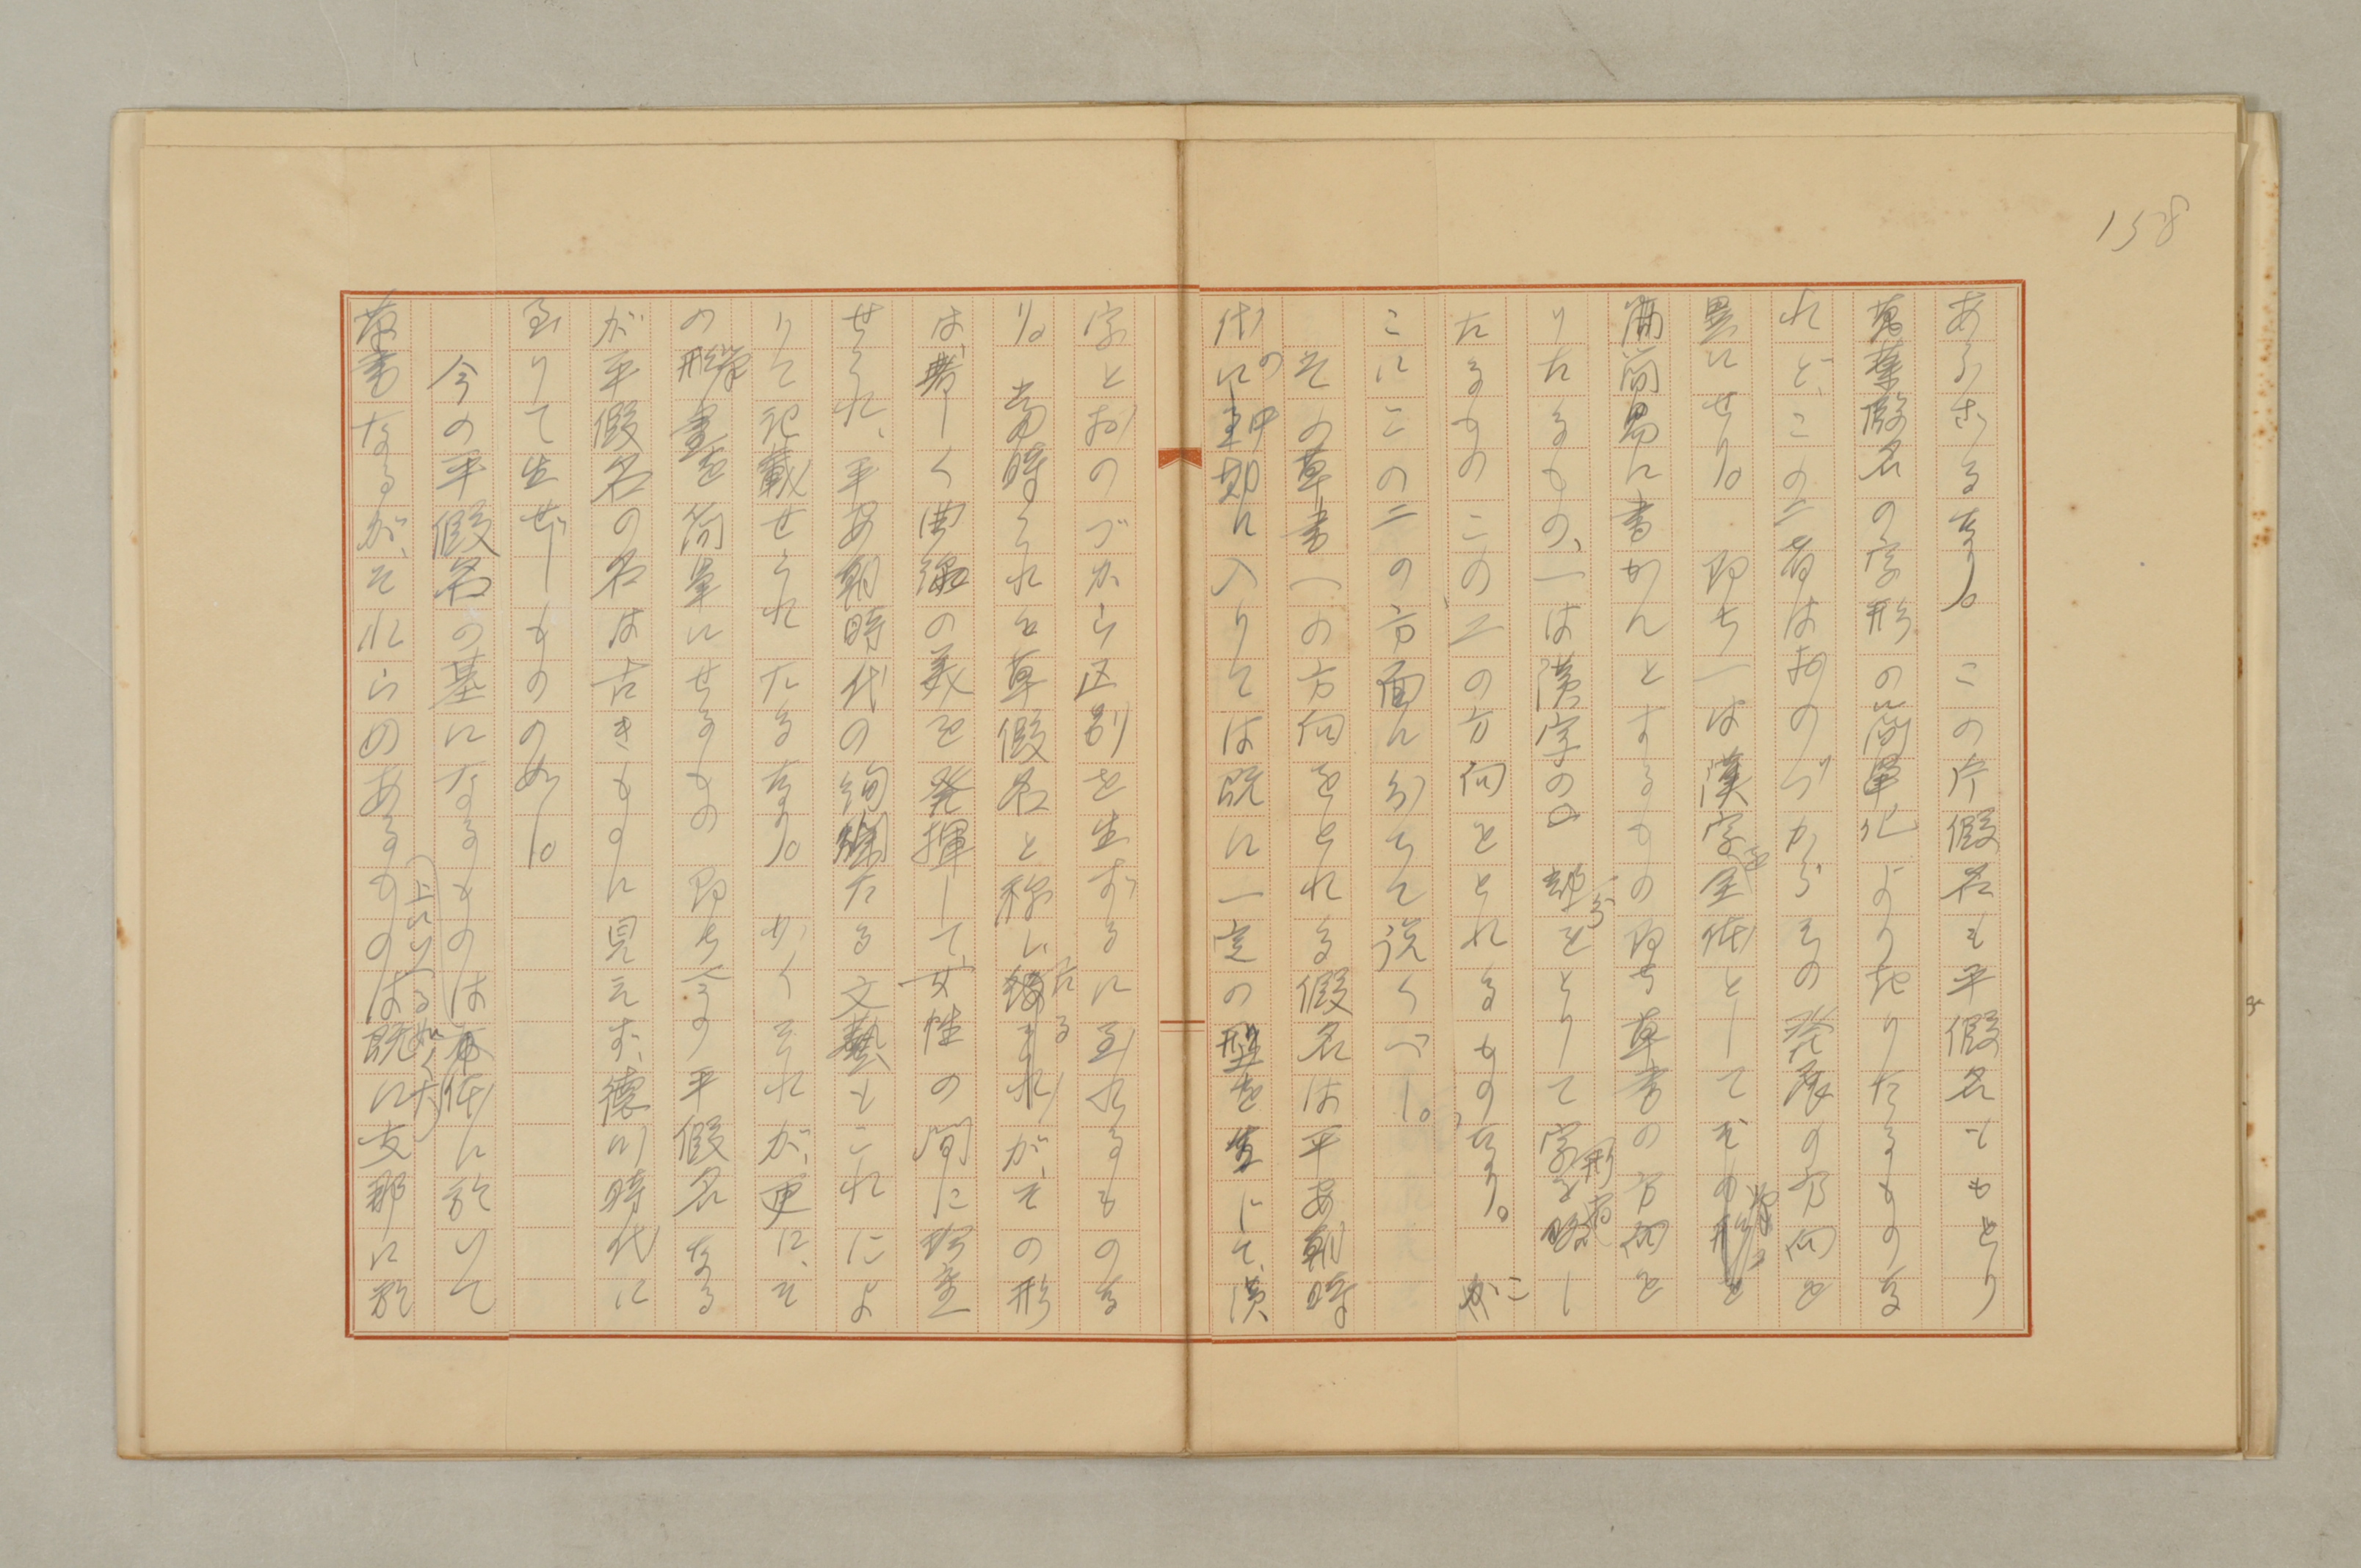 158
あらざるなり。 この片假名も平假名ももとり
萬葉假名の字形の簡單化より起りたるものな
れど、この二者はおのづからその発展の方向を
異にせり。 即ち一は漢字を全体としてその筆を
簡易に書かんとするもの即ち草書の方向を
りたるもの、一は漢字の一部分をとりて字形を省略し
たるものこの二の方向をとれるものなり。 こ
こにこの二の方面に分ちて説くべし。
その草書一の方向をとれる假名は平安朝時
代の中期に入りては既に一定の型を生じて、漢
字とおのづから区別を生ずるに至れるものな
り。 当時これを草假名と称したるが、その形
は、著しく曲線の美を発揮して、女性の間に
せられ、平安朝時代の絢爛たる文藝もこれによ
りて記載せられたるなり。 かくそれが、更に、そ
の形畫を簡單にせるもの 即ち今の平假名なる
が平假名の名は古きものに見えず、德川時代に
至りて生ぜしもののめし。
今の平假名の基になるものは大体に於いて
草書なるが、それらのあるものは既に支那に於
上にいへる如くなり